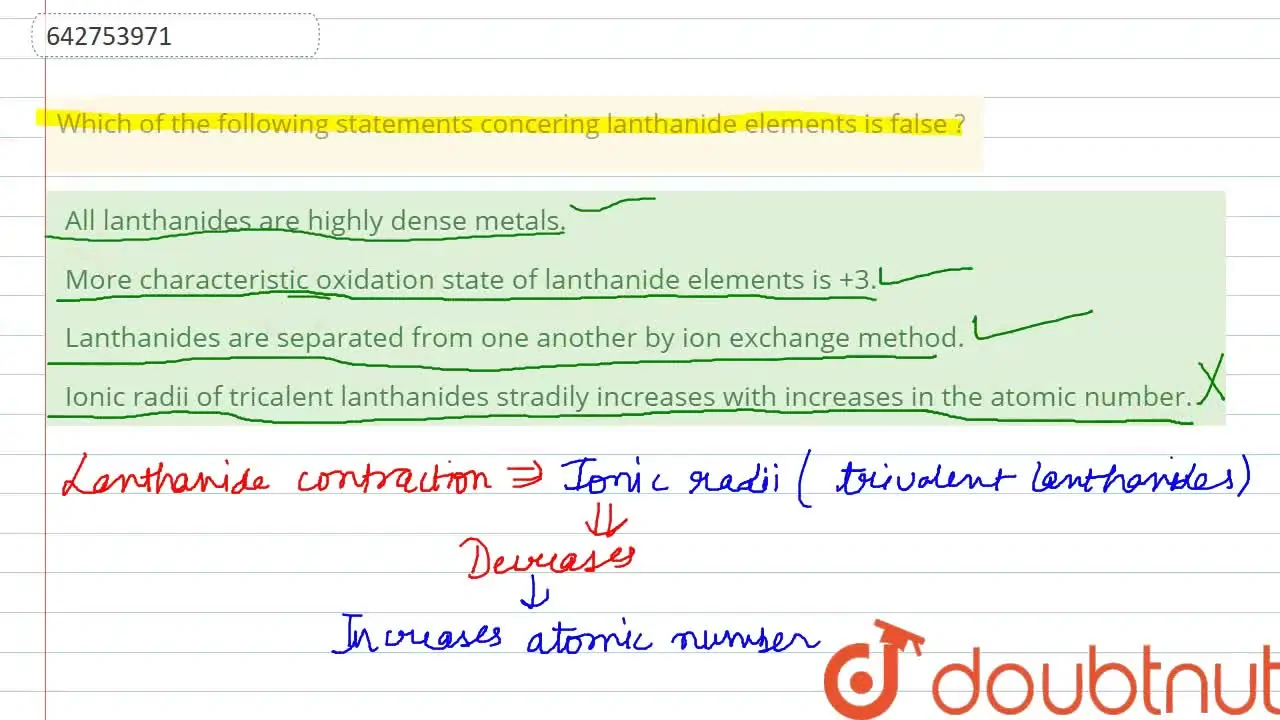 642753971
Which of the following statements concering lanthanide elements is false ?
All lanthanides are highly dense metals.
More characteristic oxidation state of lanthanide elements is +3.
Lanthanides are separated from one another by ion exchange method.
Ionic radii of tricalent lanthanides stradily increases with increases in the atomic number.
Lanthanide contraction ⇒ Ionic radii ( trivalent lanthanides)
⇓
Decreases
↓
Increases atomic number
doubtnut